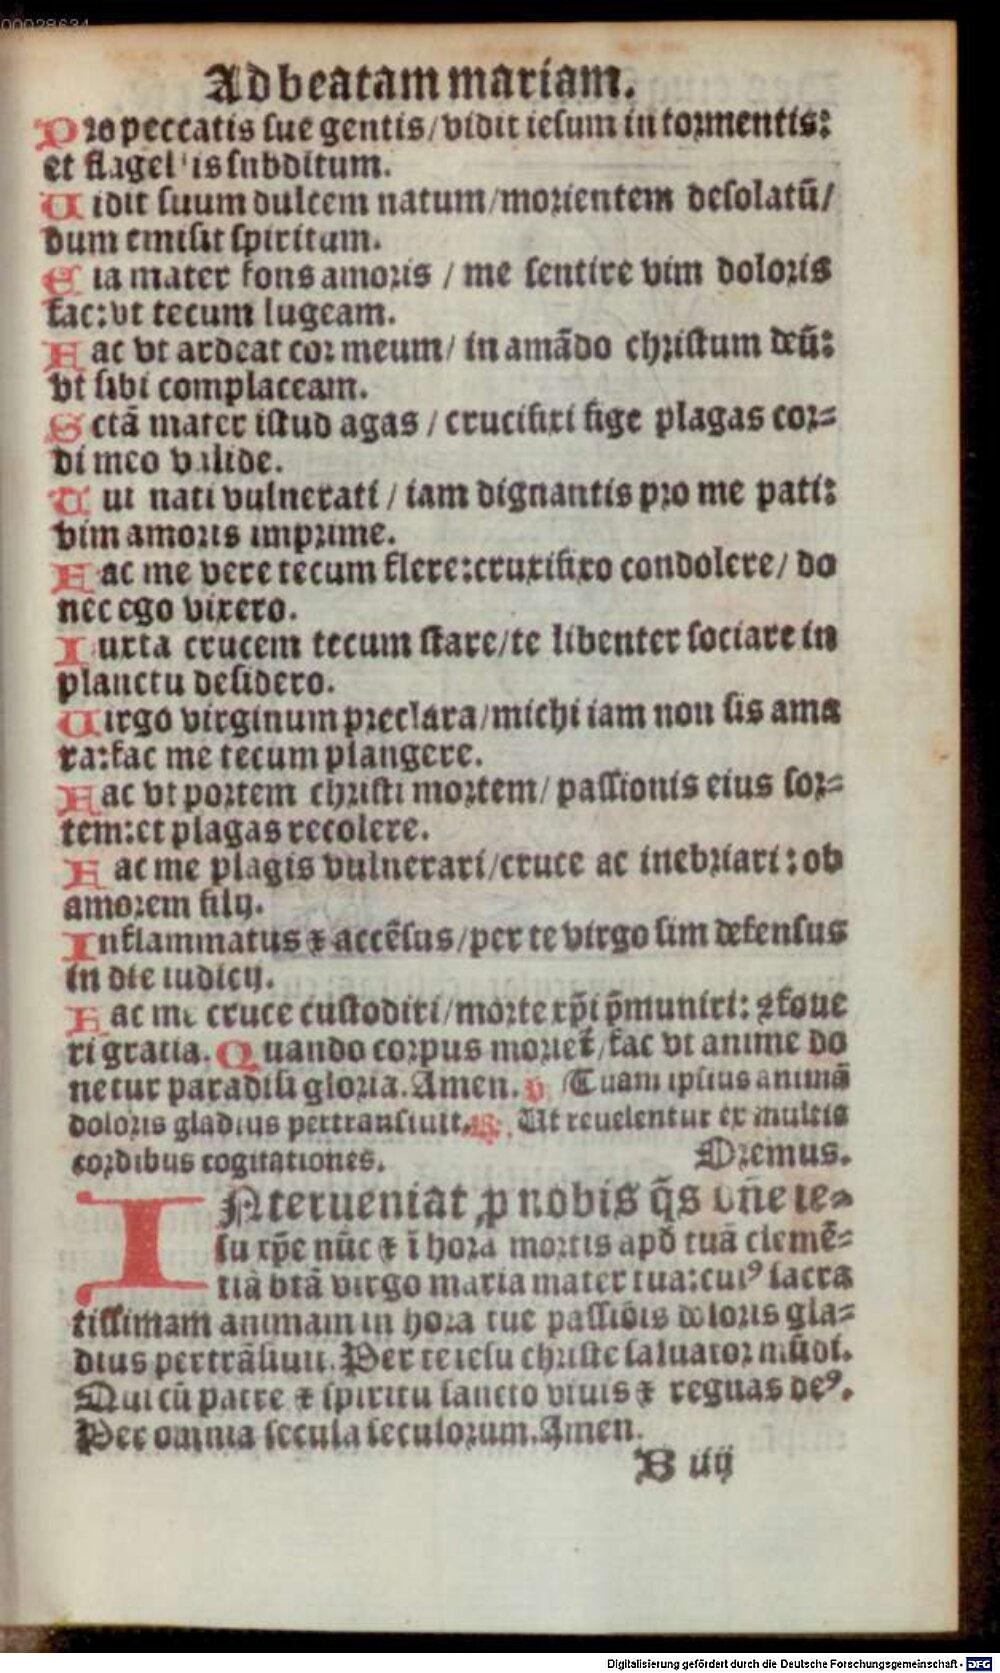 00028634
Ad beatam mariam.
Pro peccatis sue gentis/vidit iesum in tormentis:
et flagellis subditum.
Uidit suum dulcem natum/morientem desolatũ/
dum emisit spiritum.
Eia mater fons amoris / me sentire vim doloris
fac:vt tecum lugeam.
Fac vt ardeat cor meum/ in amãdo christum deũ:
vt sibi complaceam.
Sctã mater istud agas / crucifixi fige plagas cor=
di meo valide.
Tui nati vulnerati / iam dignantis pro me pati:
vim amoris imprime.
Fac me vere tecum flere:cruxifixo condolere/ do
nec ego vixero.
Iuxta crucem tecum stare/te libenter sociare in
planctu desidero.
Uirgo virginum preclara/michi iam non sis ama
ra:fac me tecum plangere.
Fac vt portem christi mortem/ passionis eius sor=
tem:et plagas recolere.
Fac me plagis vulnerari/cruce ac inebriari: ob
amorem filij.
Inflammatus ⁊ accẽsus/per te virgo sim defensus
in die iudicij.
Fac me cruce custodiri/morte xp̃i p̃muniri: ꝯfoue
ri gratia. Quando corpus moriet᷑/fac vt anime do
netur paradisi gloria. Amen. ℣. Tuam ipsius animã
doloris gladius pertransiuit. ℟. Ut reuelentur ex multis
cordibus cogitationes. Oremus.
INterueniat ꝓ nobis q̃s dñe ie=
su xp̃e nũc ⁊ ĩ hora mortis apđ tuã clemẽ=
tiã btã virgo maria mater tua:cuiꝰ sacra
tissimam animam in hora tue passiõis doloris gla=
dius pertrãsiuit. Per te iesu christe saluator mũdi.
Qui cũ patre ⁊ spiritu sancto viuis ⁊ regnas deꝰ.
Per omnia secula seculorum. Amen.
B iiij
Digitalisierung gefördert durch die Deutsche Forschungsgemeinschaft - DFG